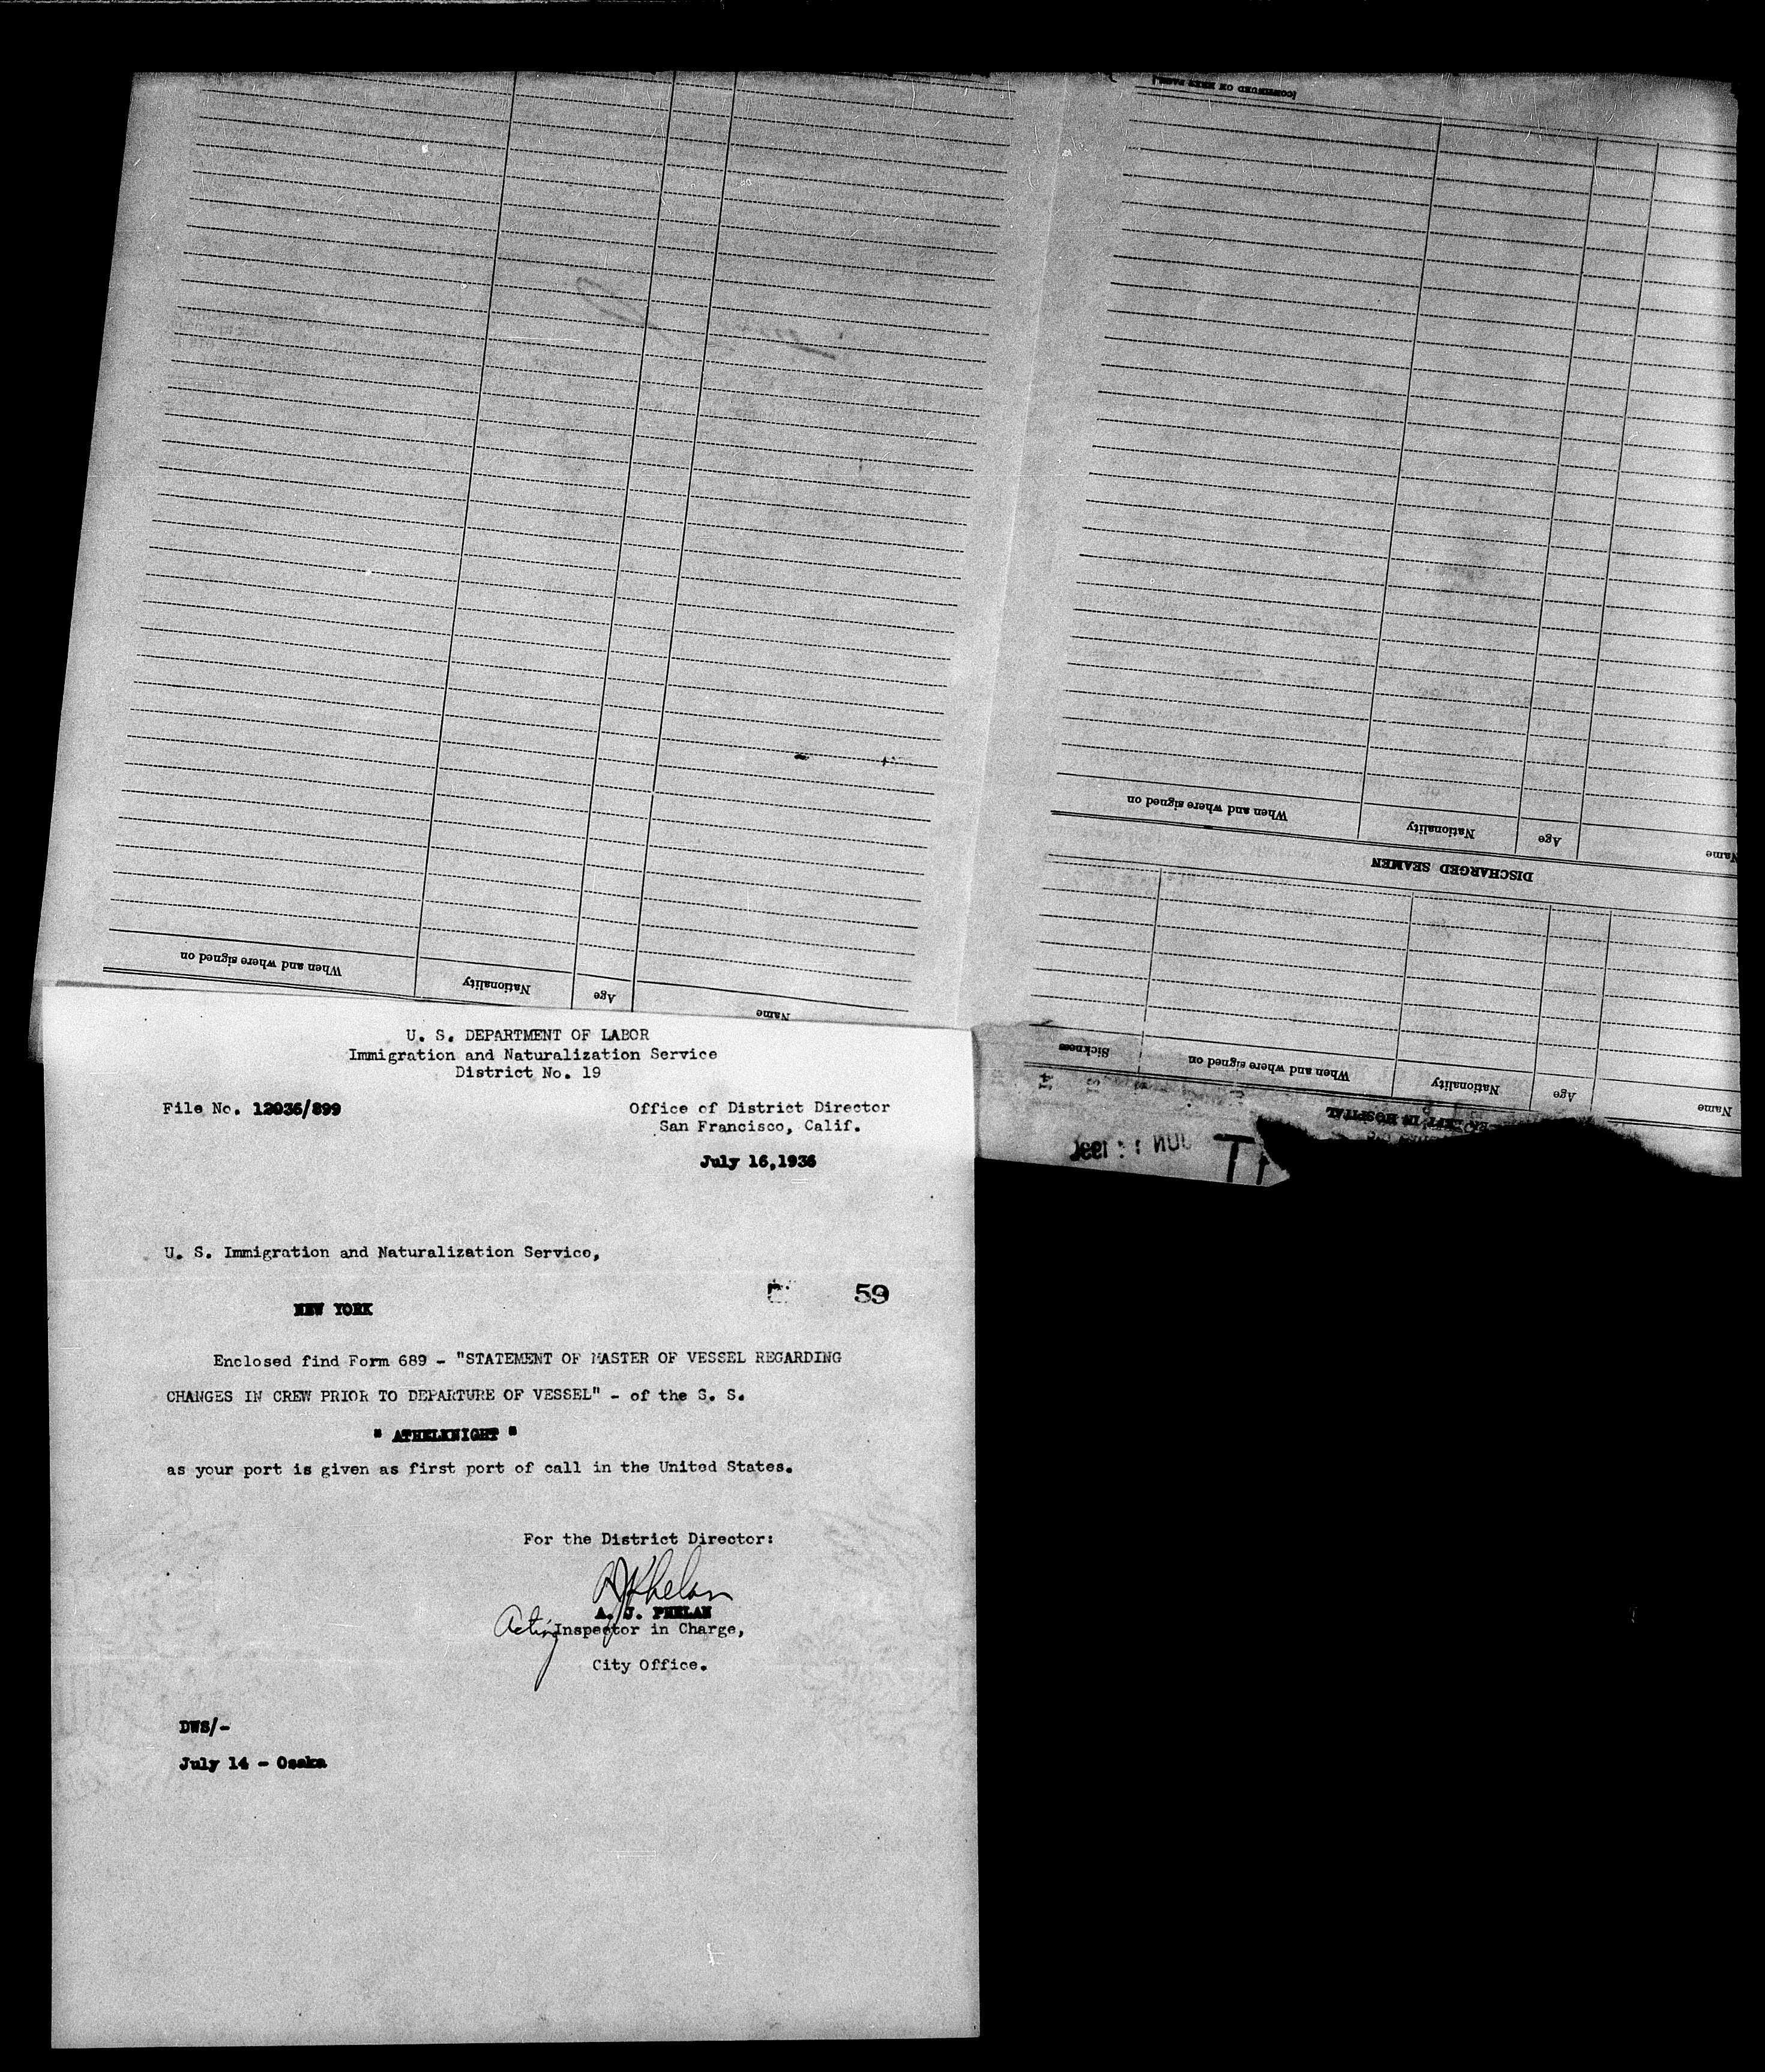 (CONTINUED ON NEXT PAGE)
Name
Age
Nationality
When and where signed on
DISCHARGED SEAMEN
Name
Age
Nationality
When and where signed on
Name
Age
Nationality
When and where signed on
Sickness
LEFT IN HOSPITAL
JUN
U. S. DEPARTMENT OF LABOR
Immigration and Naturalization Service
District No. 19
File No. 12036/899
Office of District Director
San Francisco, Calif.
July 16,1936
U. S. Immigration and Naturalization Service,
59
NEW YORK
Enclosed find Form 689 - "STATEMENT OF MASTER OF VESSEL REGARDING
CHANGES IN CREW PRIOR TO DEPARTURE OF VESSEL" - of the S. S.
" ATHELKNIGHT "
as your port is given as first port of call in the United States.
For the District Director:
AJPhelan
A. J. PHELAN
Acting Inspector in Charge,
City Office.
DWS/-
July 14 - Osaka